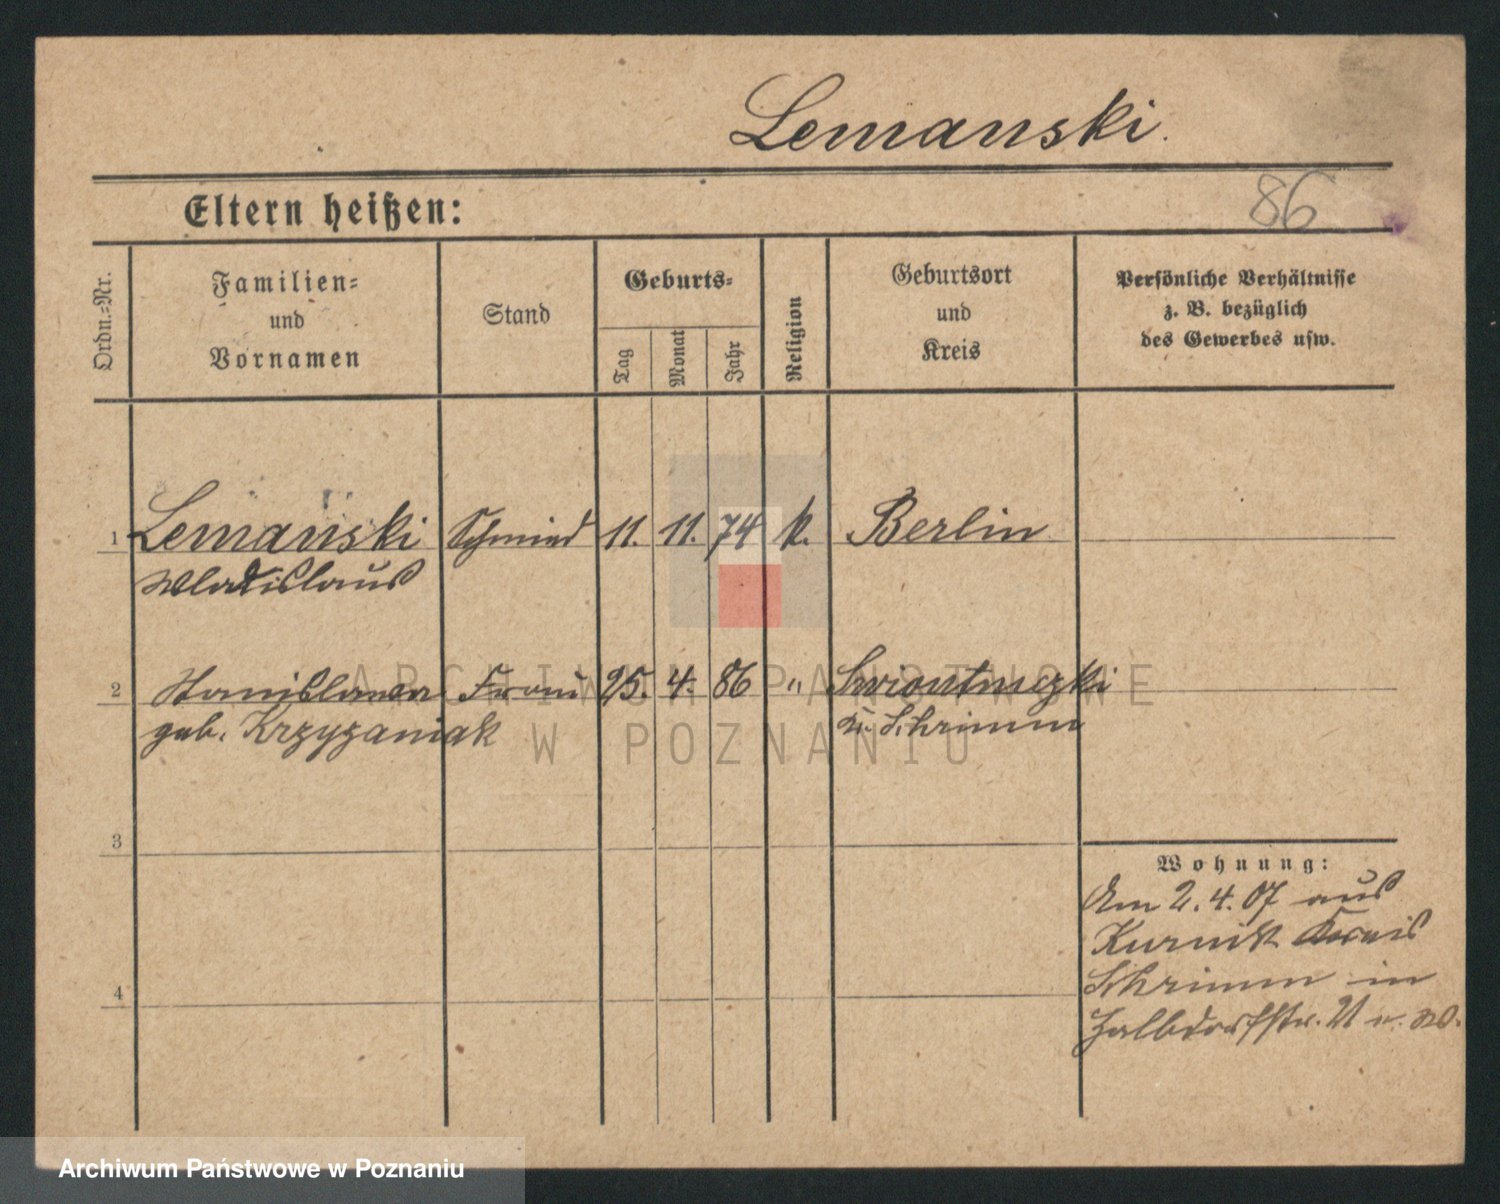 Lemanski.
86
Eltern heißen:
Ordn.=Nr.
Familien=
und
Vornamen
Stand
Geburts=
Tag
Monat
Jahr
Religion
Geburtsort
und
Kreis
Persönliche Verhältnisse
z. B. bezüglich
des Gewerbes usw.
1 Lemanski Schmied 11. 11. 74 k. Berlin
Wladislaus
2 Stanislawa Frau 25. 4. 86 " 
geb. Krzyzaniak Kr. Schrimm
3
4
Wohnung:
Am 2.4.07 aus
Kurnik Kreis
Schrimm in
Halbdorfstr. 21
ARCHIWUM PAŃSTWOWE
W POZNANIU
Archiwum Państwowe w Poznaniu